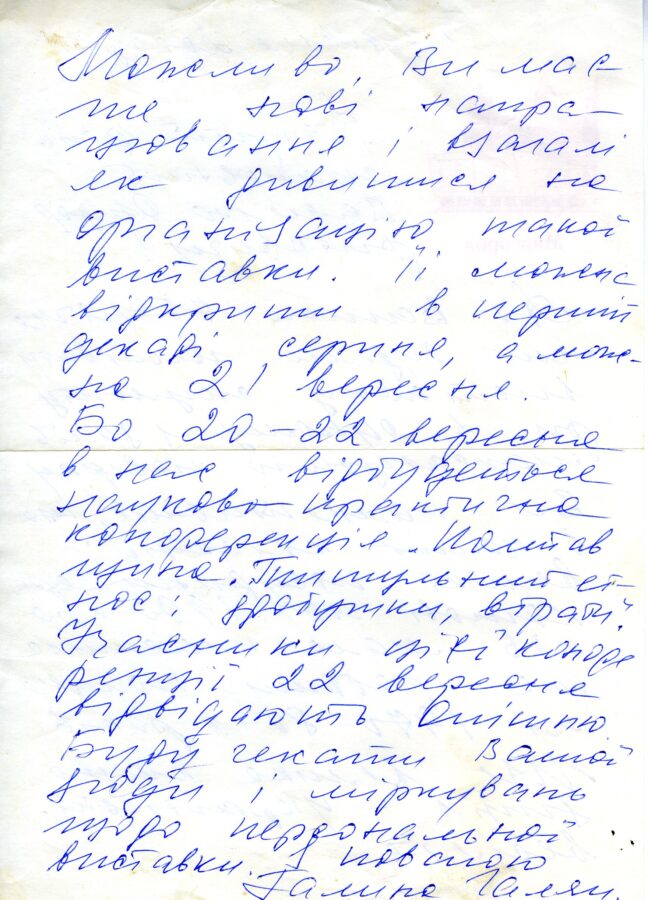 Можливо, Ви має-
те нові напра
цювання і взагалі
як дивитися на
організацію такої
виставки. Її можна
відкрити в першій
декаді серпня, а мож-
на 21 вересня.
Бо 20-22 вересня
в нас відбудеться
науково-практична
конференція „Полтав
щина. Титульний ет-
нос: здобутки, втрати".
Учасники цієї конфе
ренції 22 вересня
відвідають Опішню.
Буду чекати Вашої
згоди і міркувань
щодо персональної
виставки. З повагою
Галина Галян.